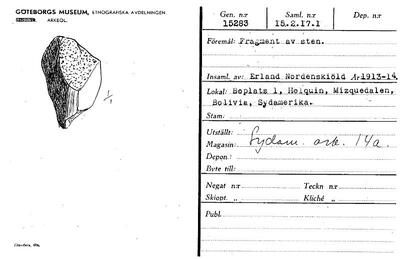 GÖTEBORGS MUSEUM, ETNOGRAFISKA AVDELNINGEN
ARKEOL.
1/1
Gen. n:r
15283
Saml. n:r
15.2.17.1
Dep. n:r
Föremål: Fragment av sten.
Insaml. av: Erland Nordenskiöld År 1913-14
Lokal: Boplats 1, Holquin, Mizquedalen,
Bolivia, Sydamerika.
Stam:
Utställt:
Magasin: Sydam. ark. 14a.
Depon.:
Byte till:
Negat n:r
Teckn n:r
Skiopt. „
Kliché „
Publ.